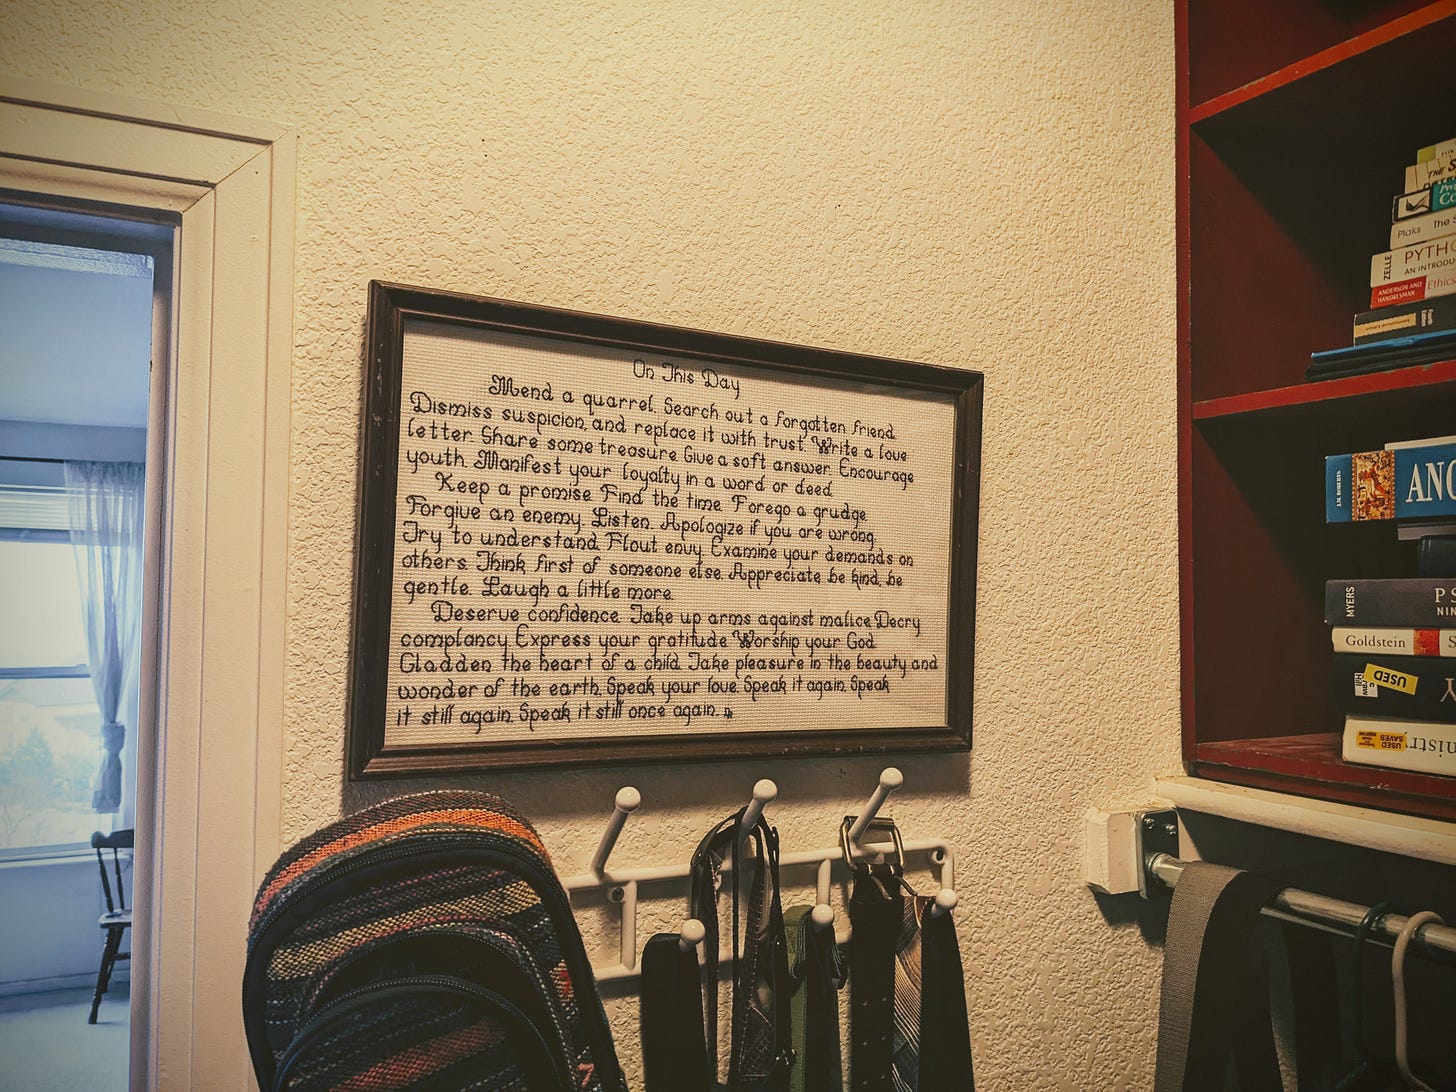 On This Day
Mend a quarrel. Search out a forgotten friend.
Dismiss suspicion, and replace it with trust. Write a love
letter. Share some treasure. Give a soft answer. Encourage
youth. Manifest your loyalty in a word or deed.
Keep a promise. Find the time. Forego a grudge.
Forgive an enemy. Listen. Apologize if you are wrong.
Try to understand. Flout envy. Examine your demands on
others. Think first of someone else. Appreciate be kind, be
gentle. Laugh a little more.
Deserve confidence. Take up arms against malice. Decry
complancy. Express your gratitude. Worship your God.
Gladden the heart of a child. Take pleasure in the beauty and
wonder of the earth. Speak your love. Speak it again. Speak
it still again. Speak it still once again.
THE S
Plaks The S
ZELLE PYTH
AN INTRODU
ANDERSON AND
HANDELSMAN Ethics
J.M. ROBERTS ANC
MYERS PS
NIN
Goldstein S
USED
USED
SAVES
nistr